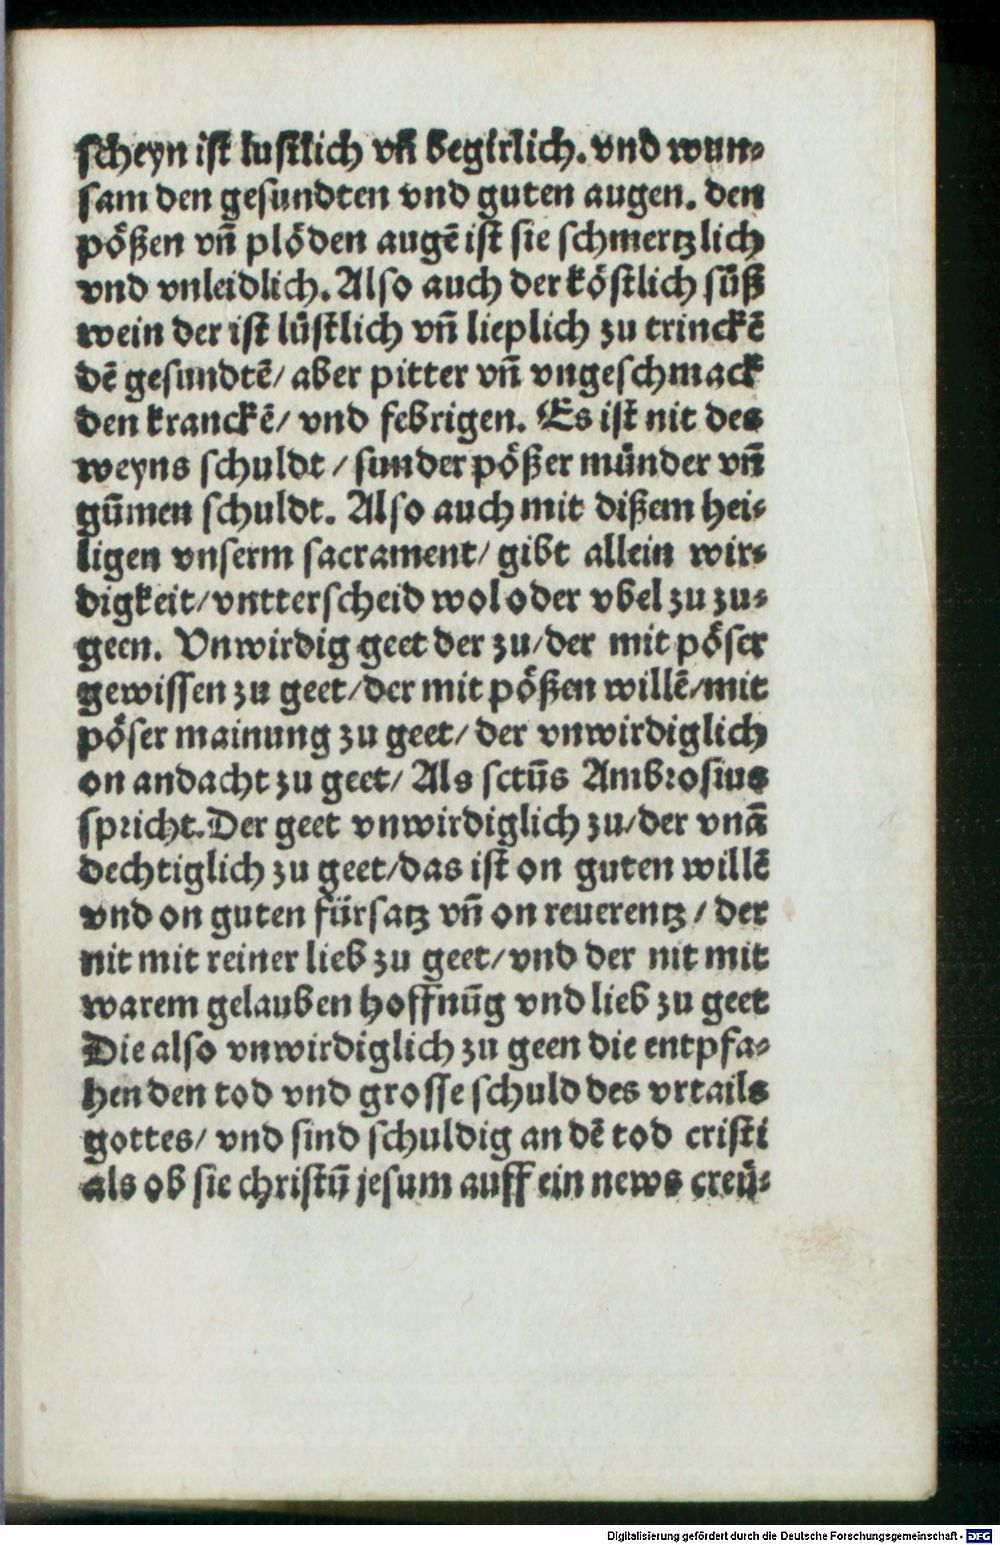 scheyn ist lustlich vn̄ begirlich. vnd wun⸗
sam den gesundten vnd guten augen. den
pößen vn̄ plöden augē ist sie schmertzlich
vnd vnleidlich. Also auch der köstlich süß
wein der ist lüstlich vn̄ lieplich zu trinckē
dē gesundtē/ aber pitter vn̄ vngeschmack
den kranckē/ vnd febrigen. Es ist nit des
weyns schuldt / sunder pößer münder vn̄
gūmen schuldt. Also auch mit dißem hei⸗
ligen vnserm sacrament/ gibt allein wir⸗
digkeit/ vntterscheid wol oder vbel zu zu⸗
geen. Vnwirdig geet der zu/ der mit pöser
gewissen zu geet/ der mit pößen willē/ mit
pöser mainung zu geet/ der vnwirdiglich
on andacht zu geet/ Als sctūs Ambrosius
spricht. Der geet vnwirdiglich zu/ der vnā
dechtiglich zu geet/ das ist on guten willē
vnd on guten fürsatz vn̄ on reuerentz / der
nit mit reiner lieb zu geet/ vnd der nit mit
warem gelauben hoffnūg vnd lieb zu geet
Die also vnwirdiglich zu geen die entpfa⸗
hen den tod vnd grosse schuld des vrtails
gottes/ vnd sind schuldig an dē tod cristi
als ob sie christū jesum auff ein news creü⸗
Digitalisierung gefördert durch die Deutsche Forschungsgemeinschaft - DFG